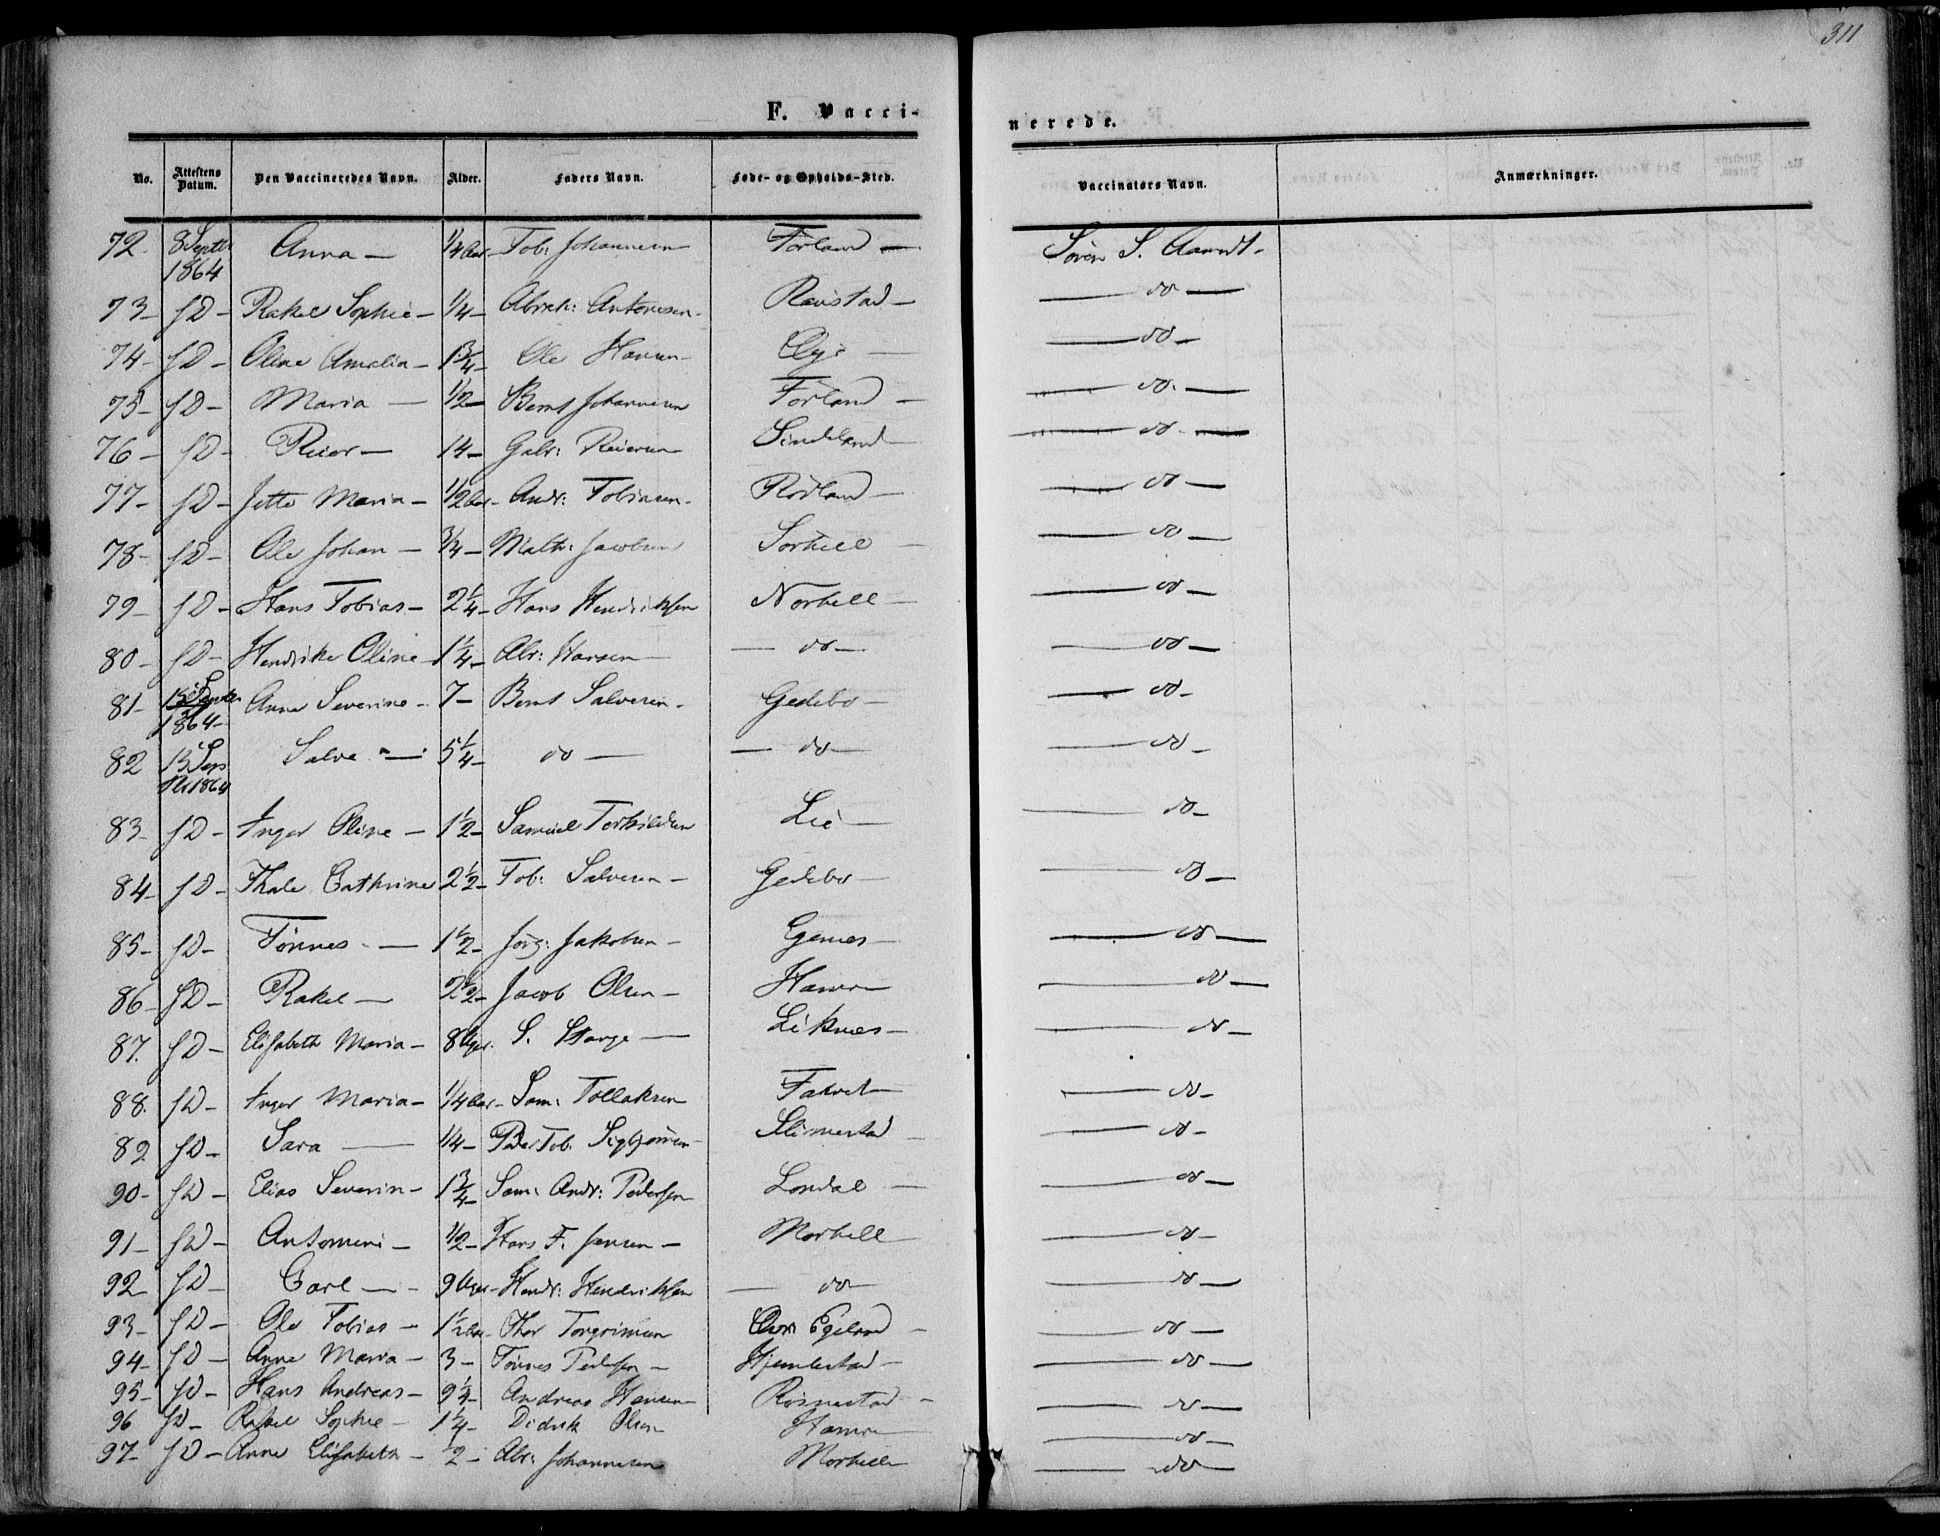 311
F. Vacci-
nerede.
No. Attestens Datum. Den Vaccineredes Navn. Alder. Faders Navn. Føde- og Opholds-Sted. Vaccinators Navn. Anmærkninger.
72. 8 Septbr 1864 Anna — 1/4 Aar — Tob: Johannesen Førland — Søren S. Aamdt.
73 — fD — Rakel Sophie — 1/4 — Abrah: Antonesen — Raustad — — do —
74 — fD — Oline Amalia — 1 3/4 — Ole Hansen — Øye — — do —
75 — fD — Maria — 1/2 — Bernt Johannesen Førland — — do —
76 — fD — Reier — 14 — Gabr: Reiersen Sindland — — do —
77 — fD — Jette Maria — 1/2 Aar — Andr: Tobiasen — Rødland — — do —
78 — fD — Ole Johan — 3/4 — Math: Jacobsen Sørhell — — do —
79 — fD — Hans Tobias — 2 1/4 — Hans Hendriksen Norhell — — do —
80 — fD — Hendrike Oline — 1 1/4 — Abr: Hansen — — do — — do —
81 — 13 Septbr 1864 — Anne Severine — 7 — Bernt Salvesen — Gedebo — — do —
82 13 Sep 1864 Salve — 5 1/4 — do — — do — — do —
83 — fD — Inger Oline — 1 1/2 — Samuel Torkildsen Lie — — do —
84 — fD — Thale Cathrine 2 1/2 — Tob: Salvesen — Gedebo — — do —
85 — fD — Tønnes — 1 1/2 — Jørg: Jakobsen — Egenes — — do —
86 — fD — Rakel — 2 1/2 — Jacob Olsen — Hamre — do —
87. fD — Elisabeth Maria — 8 Uger. S. Stange — Liknes — — do —
88. fD — Inger Maria — 1/4 Aar — Sam: Tollaksen — do —
89 fD — Sara — 1/4 — Peder Tob: Sigbjørnsen — Slimestad — do —
90 — fD — Elias Severin — 1 3/4 — Sam: Andr: Pedersen Londal — — do —
91 — fD — Antomine — 1/2 — Hans F. Jensen — Norhell — do —
92 — fD — Carl — 9 Uger — Hendr: Hendriksen — do — — do —
93 — fD — Ole Tobias — 1 1/2 Aar — Thor Torgrimsen Øvre Egeland — — do —
94 — fD — Anne Maria — 3 — Tønnes Pedersen — Hjemlestad — — do —
95 — fD — Hans Andreas — 9 1/4 — Andreas Hansen Røinestad — — do —
96 fD — Rakel Sophie — 1 1/4 — Didrik Olsen Hamre — do —
97 — fD — Anne Elisabeth — 1/2 — Abr: Johannesen Norhell — do —